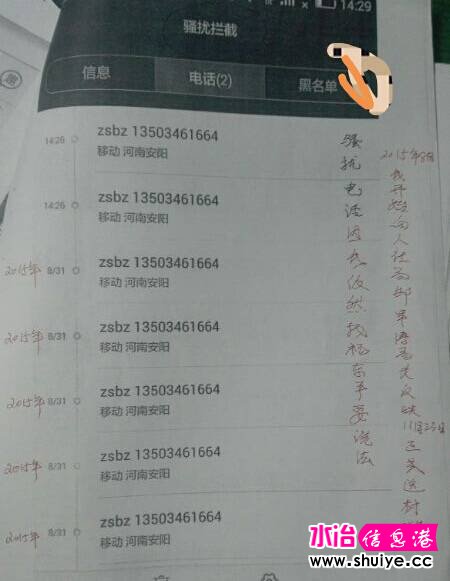 14:29
骚扰拦截
信息
电话(2)
黑名单
14:26
zsbz 13503461664
移动 河南安阳
14:26
zsbz 13503461664
移动 河南安阳
2015年 8/31
zsbz 13503461664
移动 河南安阳
2015年 8/31
zsbz 13503461664
移动 河南安阳
2015年 8/31
zsbz 13503461664
移动 河南安阳
2015年 8/31
zsbz 13503461664
移动 河南安阳
2015年 8/31
zsbz 13503461664
移动 河南安阳
骚扰电话
然找杨东平要说法
2015年8月
我开始向人社局
反映
水冶信息港
www.shuiye.cc